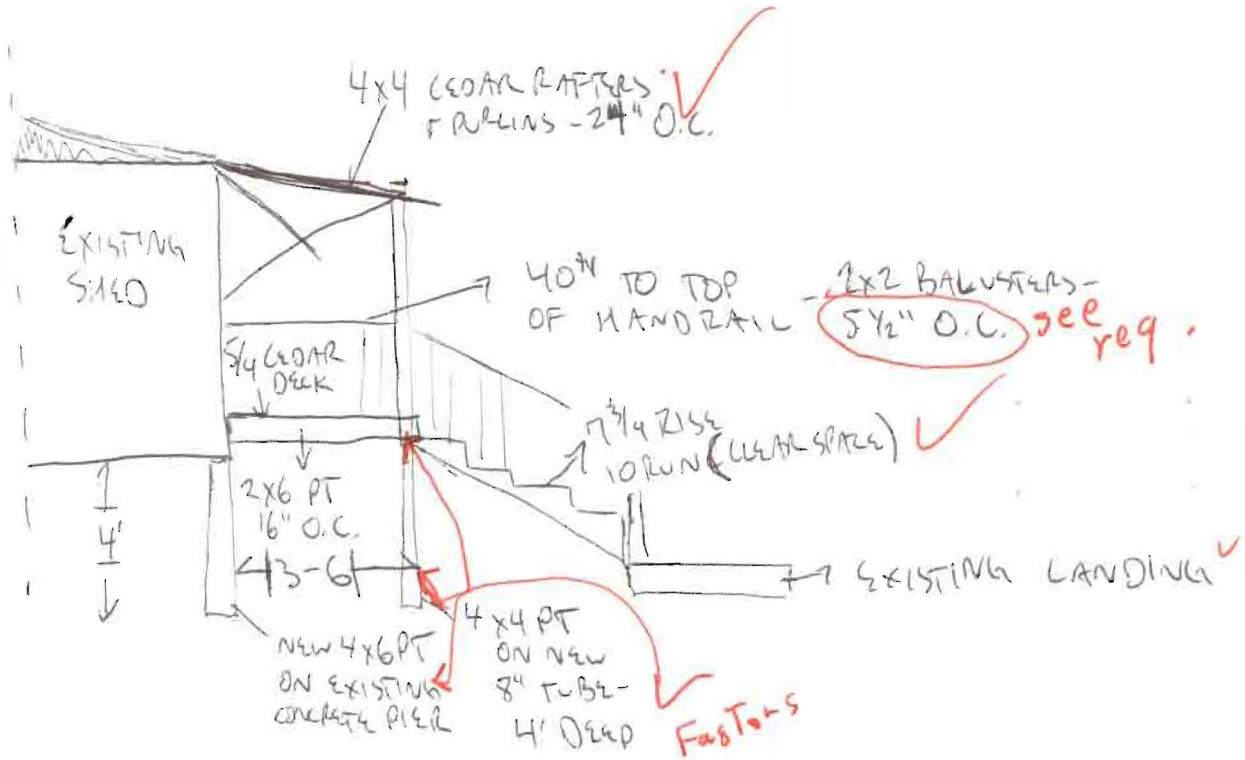 4x4 CEDAR RAFTERS
+ PURLINS - 24" O.C.
EXISTING
SHED
40" TO TOP
OF HANDRAIL
- 2x2 BALUSTERS -
5 1/2" O.C.
see
req.
5/4 CEDAR
DECK
7 3/4 RISE
10 RUN (CLEAR SPACE)
2x6 PT
16" O.C.
4'
3-6
EXISTING LANDING
NEW 4x6 PT
ON EXISTING
CONCRETE PIER
4x4 PT
ON NEW
8" TUBE-
4' DEEP